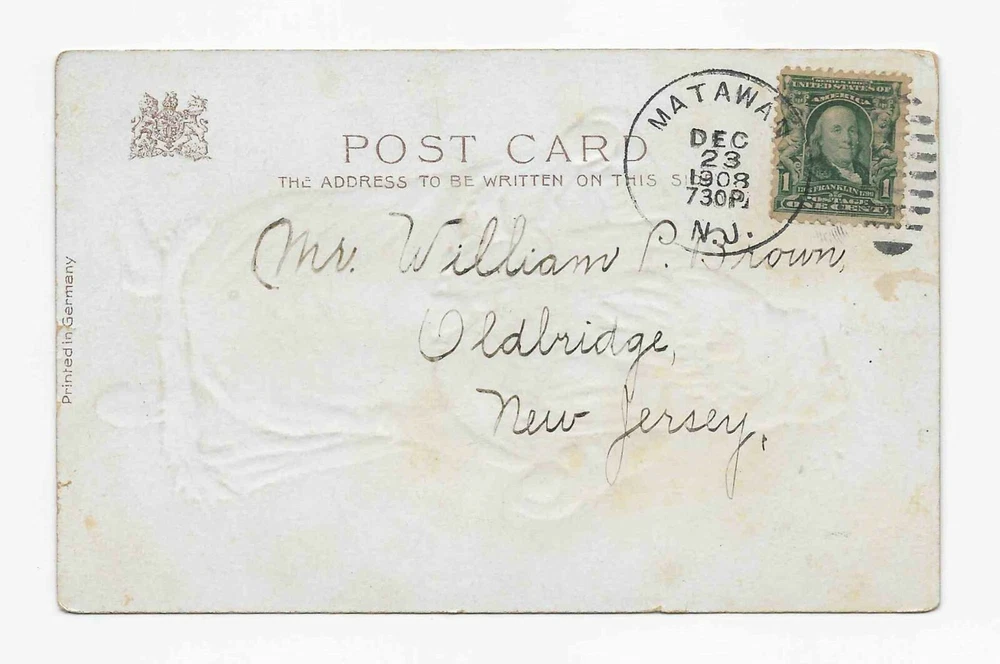 POST CARD
THE ADDRESS TO BE WRITTEN ON THIS SIDE
MATAWAN
DEC
23
1908
730P
N.J.
SERIES 1902
UNITED STATES OF
AMERICA
FRANKLIN
POSTAGE
1 ONE CENT 1
Mr. William P. Brown,
Oldbridge,
New Jersey,
Printed in Germany